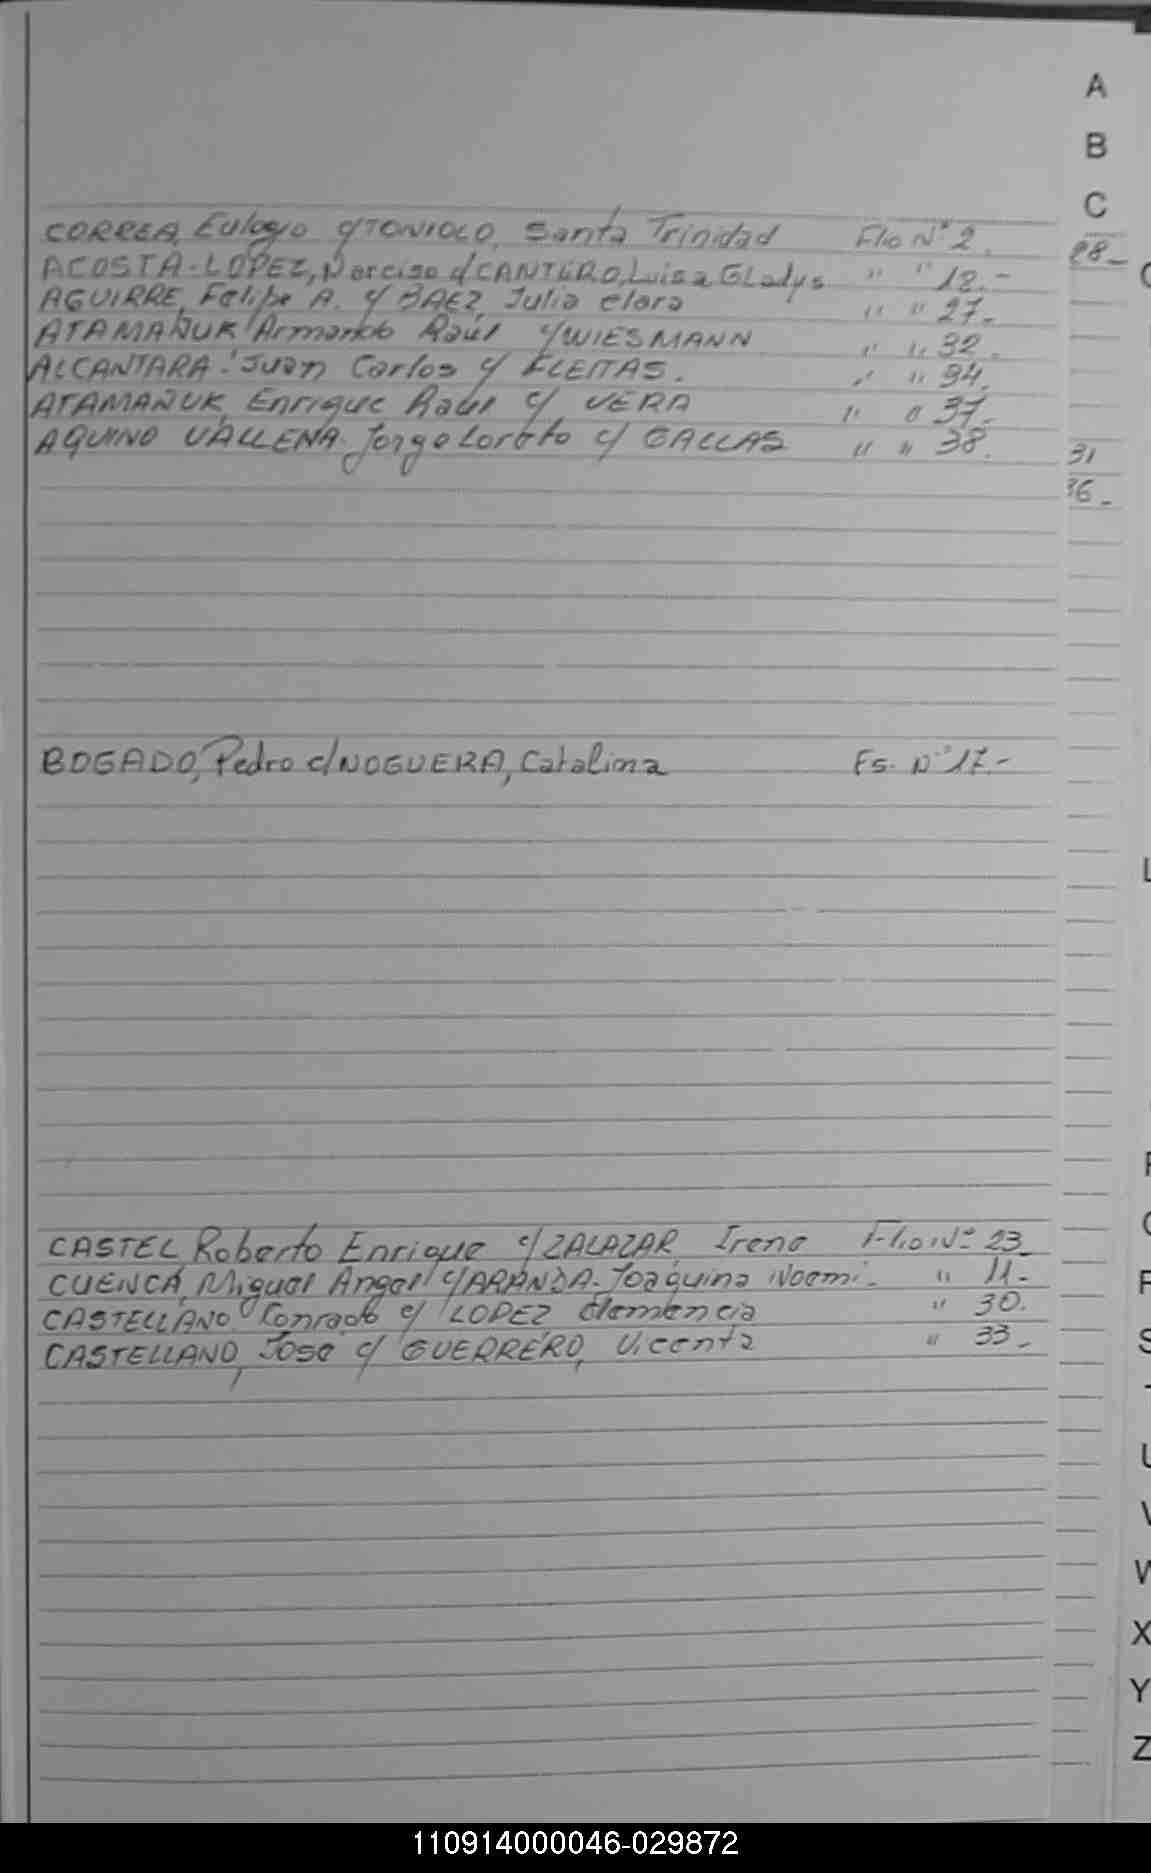 A
B
C
CORREA, Eulogio c/TONIOLO, Santa Trinidad Flio Nº 2.
28-
ACOSTA-LOPEZ, Narciso c/CANTERO, Luisa GLadys " " 12.-
AGUIRRE, Felipe A. c/ BAEZ, Julia Clara " " 27.-
ATAMAÑUK Armando Raúl c/WIESMANN " " 32.
ALCANTARA. Juan Carlos c/ FLEITAS. " " 34.
ATAMAÑUK, Enrique Raúl c/ VERA " " 37.-
AQUINO VALLENA. Jorge Loreto c/ GALLAS " " 38.
31
36-
BOGADO, Pedro c/NOGUERA, Catalina Fs. Nº 17.-
L
CASTEL Roberto Enrique c/ZALAZAR Irene Flio Nº 23-
CUENCA, Miguel Angel c/ARANDA. Joaquina Noemi- " 11.-
CASTELLANO Conrado c/ LOPEZ Clemencia " 30.
CASTELLANO, José c/ GUERRERO, Vicenta " 33-
S
U
V
W
X
Y
Z
110914000046-029872